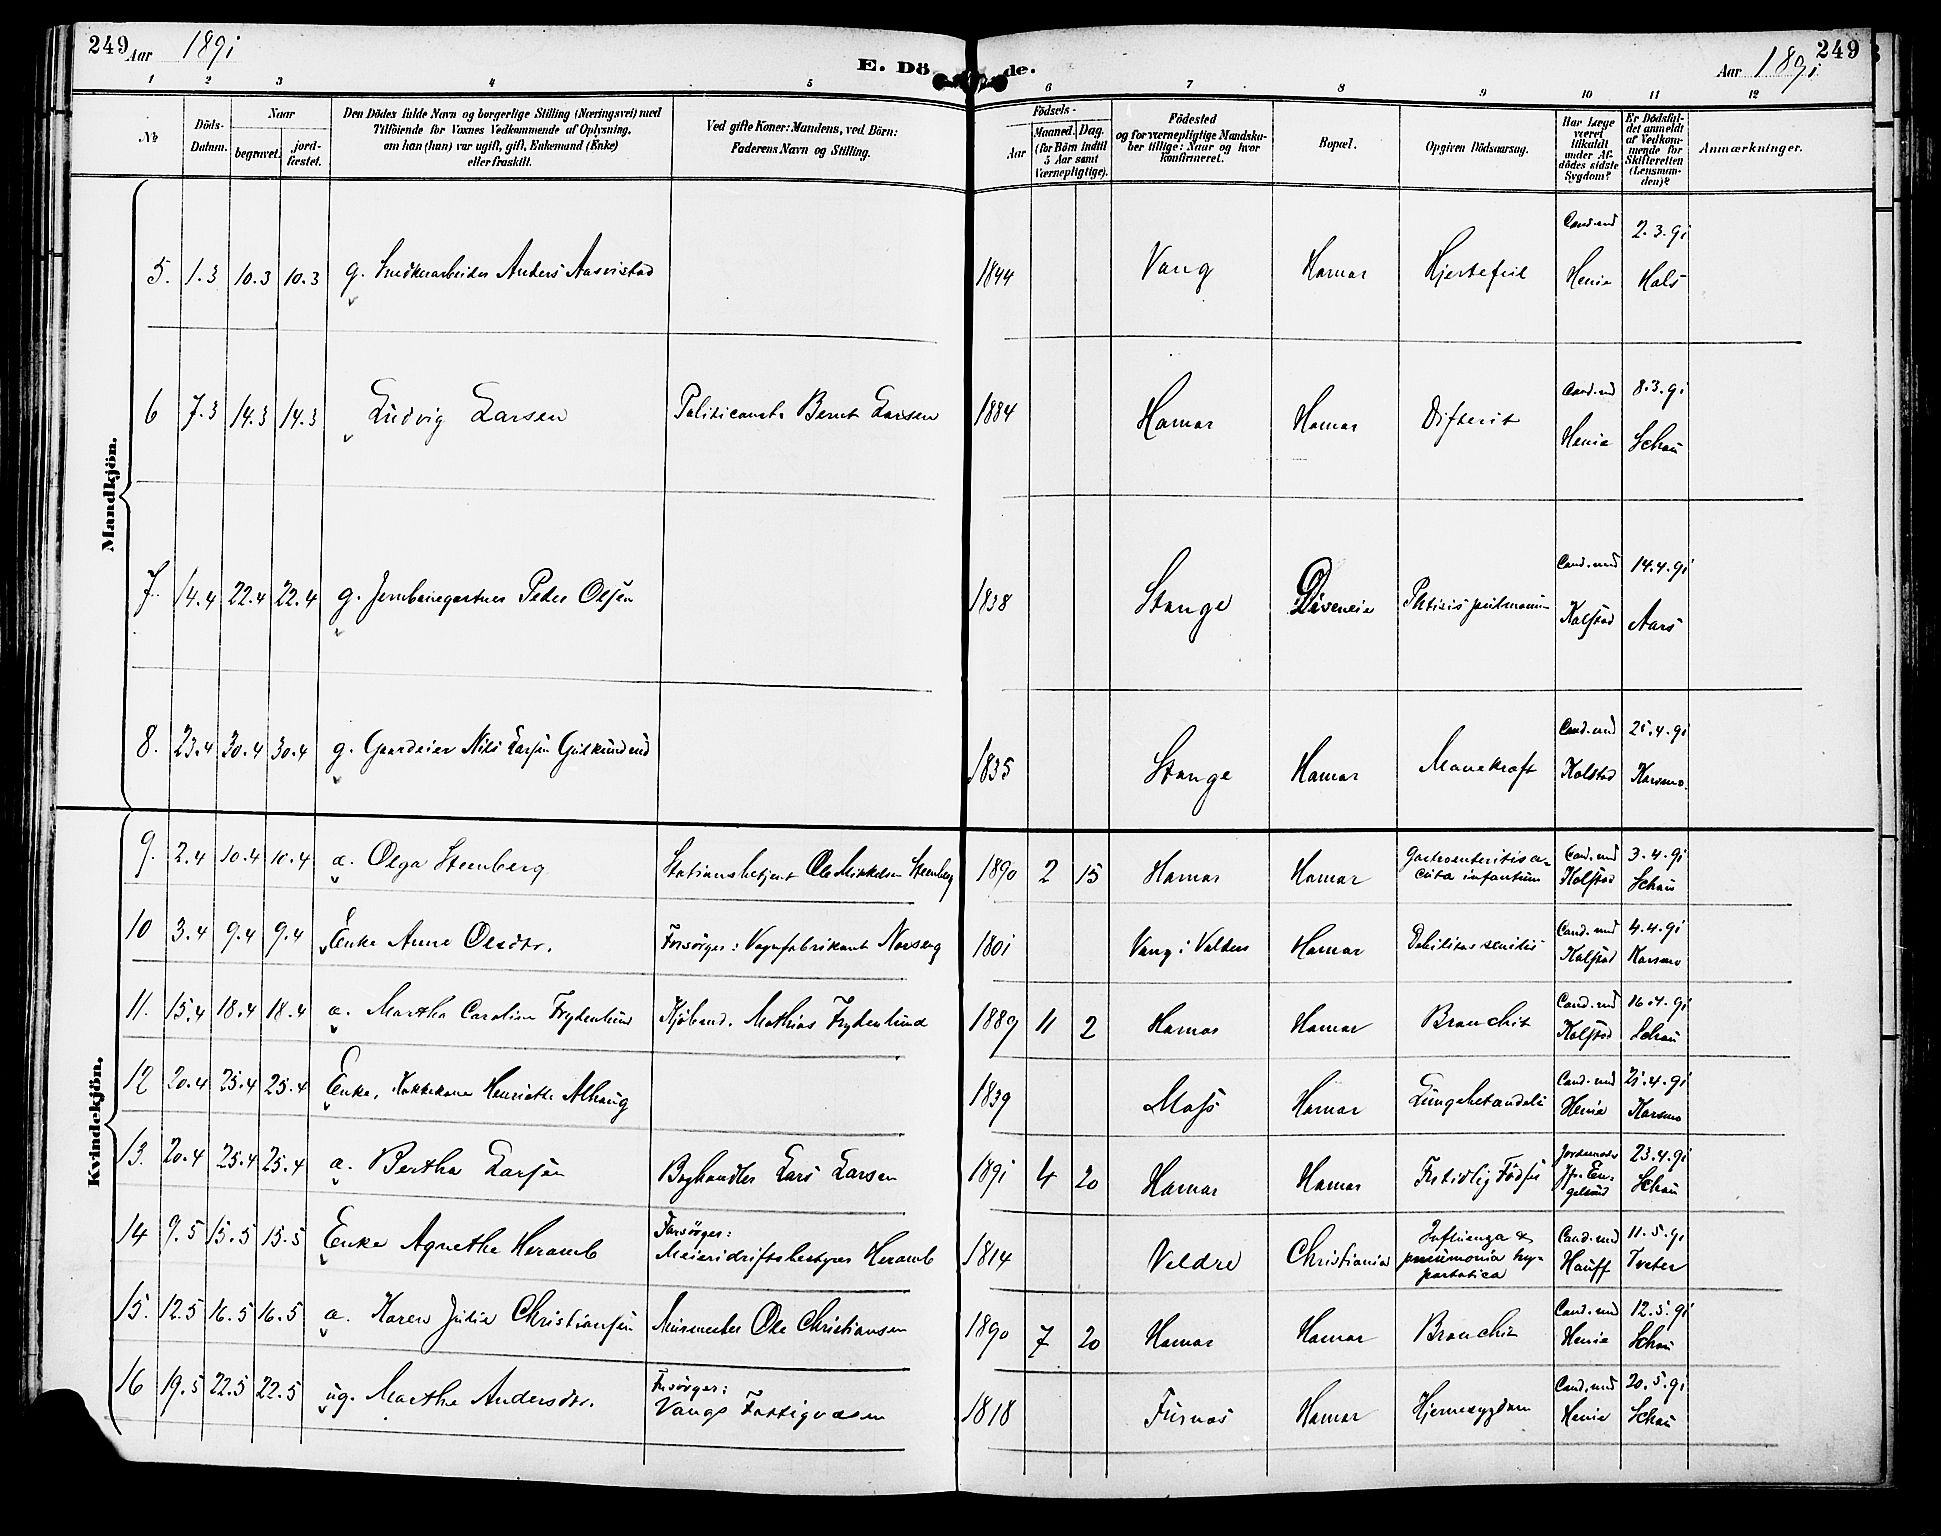 249 Aar 1891
E. Dö de.
Aar 1891 249
1 2 3 4 5 6 7 8 9 10 11 12
No
Döds-Datum.
Naar
begravet.
jord-fæstet.
Den Dödes fulde Navn og borgerlige Stilling (Næringsvei) med
Tilföiende for Voxnes Vedkommende af Oplysning,
om han (hun) var ugift, gift, Enkemand (Enke)
eller fraskilt.
Ved gifte Koner: Mandens, ved Börn:
Faderens Navn og Stilling.
Födsels-
Aar
Maaned. Dag.
(for Börn indtil
5 Aar samt
Værnepligtige).
Födested
og for værnepligtige Mandska-
ber tillige: Naar og hvor
konfirmeret.
Bopæl.
Opgiven Dödsaarsag.
Har Læge
været
tilkaldt
under Af-
dödes sidste
Sygdom?
Er Dödsfal-
det anmeldt
af Vedkom-
mende for
Skifteretten
(Lensman-
den)?
Anmærkninger.
Mandkjön.
5. 1.3 10.3 10.3 g. Snedkerarbeider Anders Aasvistad 1844 Vang Hamar Hjertefeil Cand. med Henie 2.3.91 Hals
6 7.3 14.3 14.3 Ludvig Larsen Politiconst. Bernt Larsen 1884 Hamar Hamar Difterit Cand. med Henie 8.3.91 Schau
7. 14.4 22.4 22.4 g. Jernbanegartner Peder Olsen 1838 Stange Phtisis pulmonum Cand. med Kolstad 14.4.91 Aars
8. 23.4 30.4 30.4 g. Gaardeier Nils Larsen 1835 Stange Hamar Mavekraft Cand. med Kolstad 25.4.91 Karsmo.
Kvindekjön.
9. 2.4 10.4 10.4 a. Olga Steenberg Stationsbetjent Ole Mikkelsen Steenberg 1890 2 15 Hamar Hamar Gastroenteritis acuta infantum Cand. med Kolstad 3.4.91 Schau
10 3.4 9.4 9.4 Enke Anne Olsdtr. Forsörger: Vognfabrikant Norseng 1801 Vang i Valders Hamar Debilitas senilis Cand. med Kolstad 4.4.91 Karsmo
11. 15.4 18.4 18.4 a. Martha Caroline Frydenlund Kjöbmd. Mathias Frydenlund 1889 11 2 Hamar Hamar Bronchit Cand. med Kolstad 16.4.91 Schau
12 20.4 25.4 25.4 Enke, Kokkekone Henriette Alhaug 1839 Moss Hamar Lungebetændelse Cand. med Henie 21.4.91 Karsmo
13. 20.4 25.4 25.4 a. Bertha Larsen Boghandler Lars Larsen 1891 4 20 Hamar Hamar Fortidlig Födsel Jordemoder 23.4.91 Schau
14 9.5 15.5 15.5 Enke Agnethe Heramb Forsörger: Meieridriftsbestyrer Heramb 1814 Veldre Christiania Influenza & pneumonia hypostatica Cand. med Hauff 11.5.91 Tveter
15. 12.5 16.5 16.5 a. Karen Julie Christiansen Murmester Ole Christiansen 1890 7 20 Hamar Hamar Bronchit Cand. med Henie 12.5.91 Schau
16 19.5 22.5 22.5 ug. Marthe Andersdtr. Forsörger: Vangs Fattigvæsen 1818 Furnæs Hamar Hjernesygdom Cand. med Henie 20.5.91 Schau